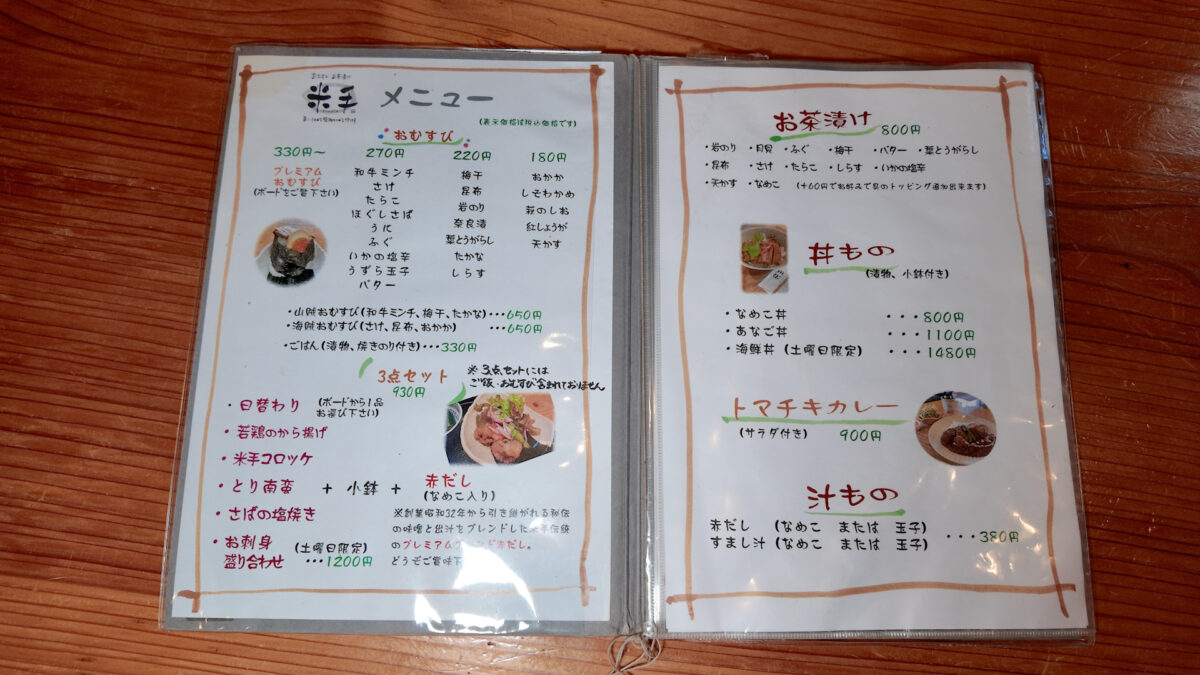 米手 メニュー
(表示価格は税込価格です)
おむすび
330円〜
プレミアム
おむすび
(ボードをご覧下さい)
270円
和牛ミンチ
さけ
たらこ
ほぐしさば
うに
ふぐ
いかの塩辛
うずら玉子
バター
220円
梅干
昆布
岩のり
奈良漬
葉とうがらし
たかな
しらす
180円
おかか
しそわかめ
萩のしお
紅しょうが
天かす
・山賊おむすび(和牛ミンチ、梅干、たかな)・・・650円
・海賊おむすび(さけ、昆布、おかか) ・・・650円
・ごはん(漬物、焼きのり付き)・・・330円
3点セット
930円
※3点セットには
ご飯・おむすび含まれておりません
・日替わり (ボードから1品
お選び下さい)
・若鶏のから揚げ
・米手コロッケ
・とり南蛮
・さばの塩焼き
・お刺身 (土曜日限定)
盛り合わせ ・・・1200円
+ 小鉢 + 赤だし
(なめこ入り)
※創業昭和32年から引き継がれる秘伝
の味噌と出汁をブレンドした米手伝統
のプレミアムブレンド赤だし。
どうぞご賞味下
お茶漬け 800円
・岩のり ・月見 ・ふぐ ・梅干 ・バター ・葉とうがらし
・昆布 ・さけ ・たらこ ・しらす ・いかの塩辛
・天かす ・なめこ (+60円でお好みで具のトッピング追加出来ます)
丼もの
(漬物、小鉢付き)
・なめこ丼 ・・・800円
・あなご丼 ・・・1100円
・海鮮丼 (土曜日限定) ・・・1480円
トマチキカレー
(サラダ付き) 900円
汁もの
赤だし (なめこ または 玉子)
すまし汁 (なめこ または 玉子) ・・・380円